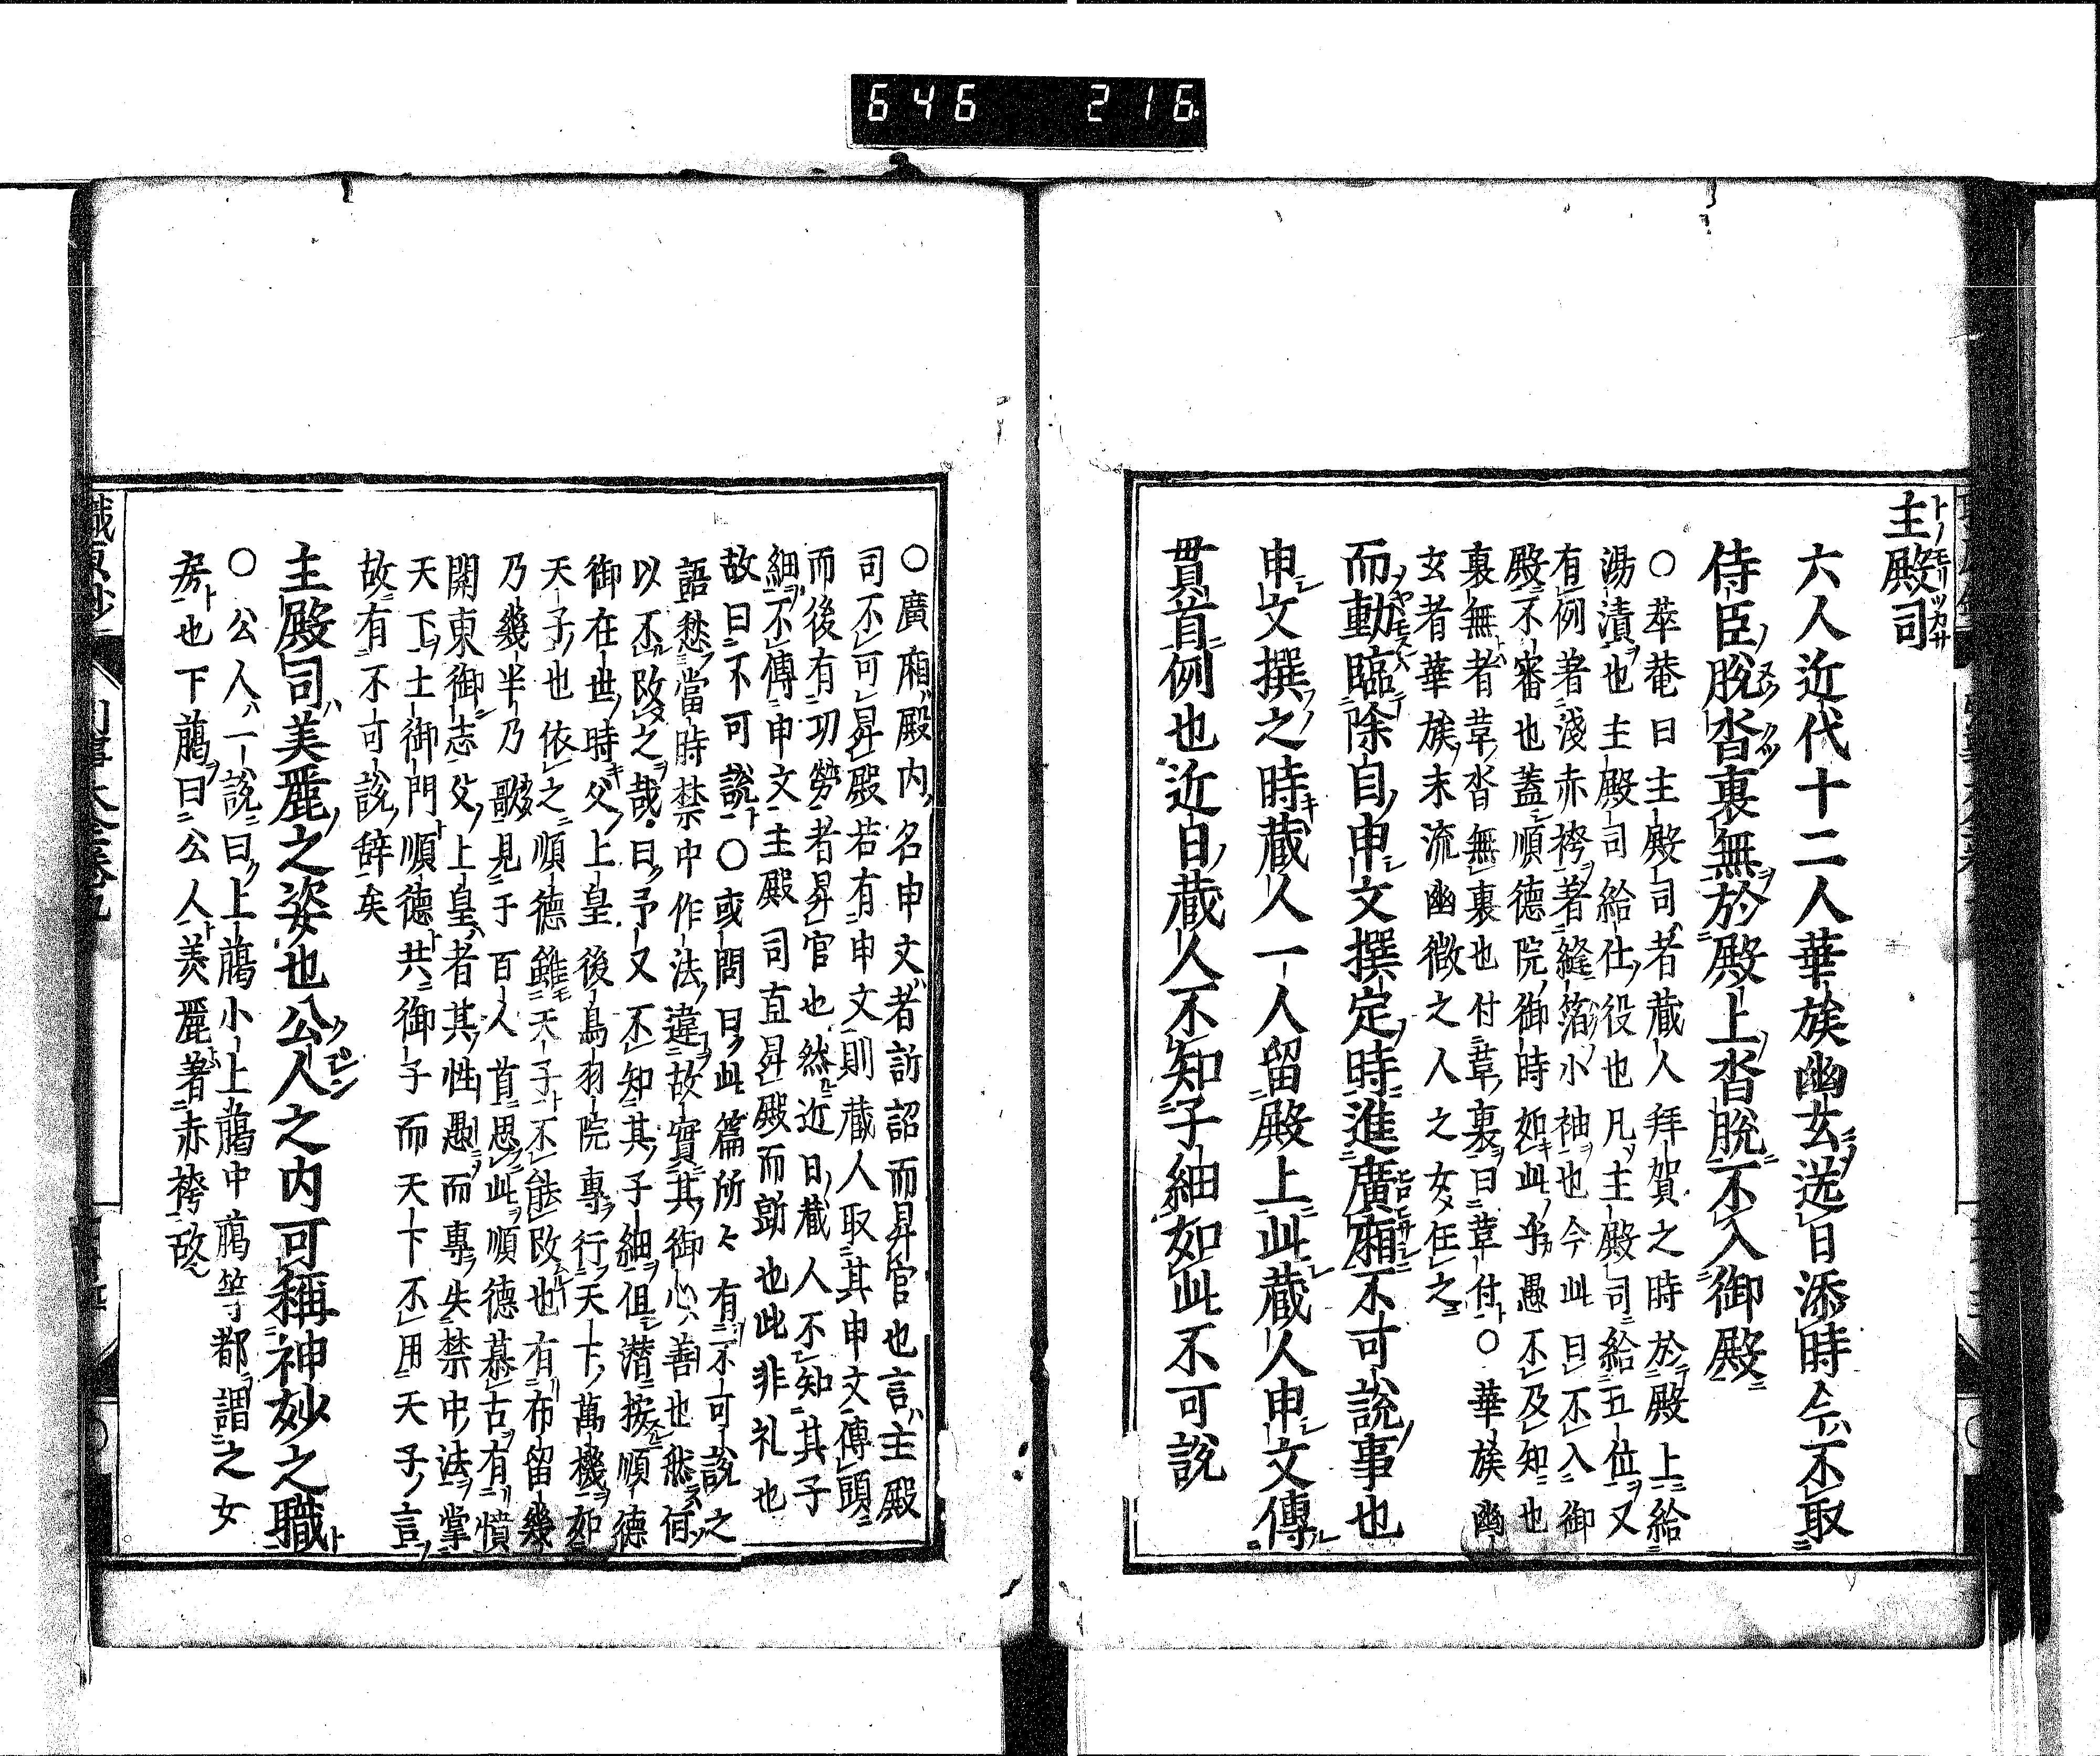 646 216
主殿司
六人近代十二人華族幽玄送日添時今不取
侍臣脱沓裏無於殿上沓脱不入御殿
○莘菴曰主殿司者蔵人拜賀之時於殿上給
湯漬也主殿司給仕役也凡主殿司給五位又
有例著淺赤袴著縫箔小袖也今此日不入御
殿不審也蓋順德院御時如此乎愚不及知也
裏無者草沓無裏也付草裏曰草付○華族幽
玄者華族末流幽微之人之女任之
而動臨除自申文撰定時進廣廂不可說事也
申文撰之時蔵人一人留殿上此蔵人申文傳
貫首例也近日蔵人不知子細如此不可說
○廣廂殿内名申文者訴詔而昇官也言主殿
司不可昇殿若有申文則蔵人取其申文傳頭
而後有功勞者昇官也然近日蔵人不知其子
細不傳申文主殿司直昇殿而訴也此非礼也
故曰不可說○或問曰此篇所々有不可說之
語愁當時禁中作法違故實其御心善也然何
以不改之哉曰予又不知其子細但潜按順德
御在世時父上皇後鳥羽院專行天下萬機如
天子也依之順德雖天子不能改也有布留幾
乃幾半乃歌見于百人首思此順德慕古有憤
關東御志父上皇者其性愚而專失禁中法掌
天下土御門順德共御子而天下不用天子言
故有不可說辞矣
主殿司美麗之姿也公人之内可稱神妙之職
○公人一說曰上﨟小上﨟中﨟等都謂之女
房也下﨟曰公人美麗著赤袴故